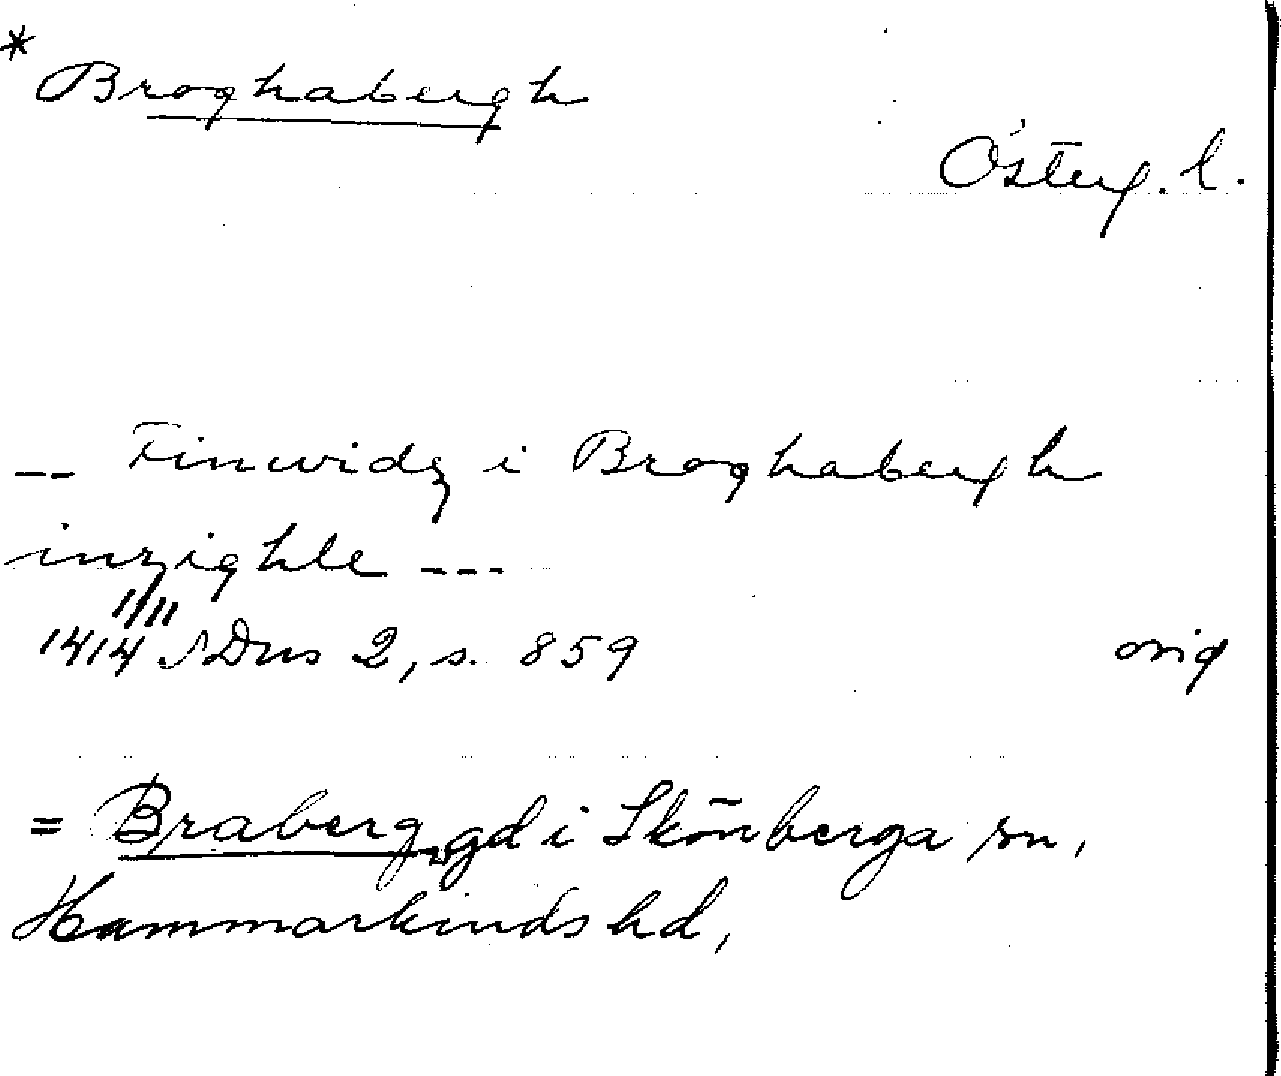 * Broghabergh
Österg. l.
-- Finwidz i Broghabergh
inzighle ---
1414 1/11 SDns 2, s. 859 orig
= Braberg, gd i Skönberga sn,
Hammarkinds hd,